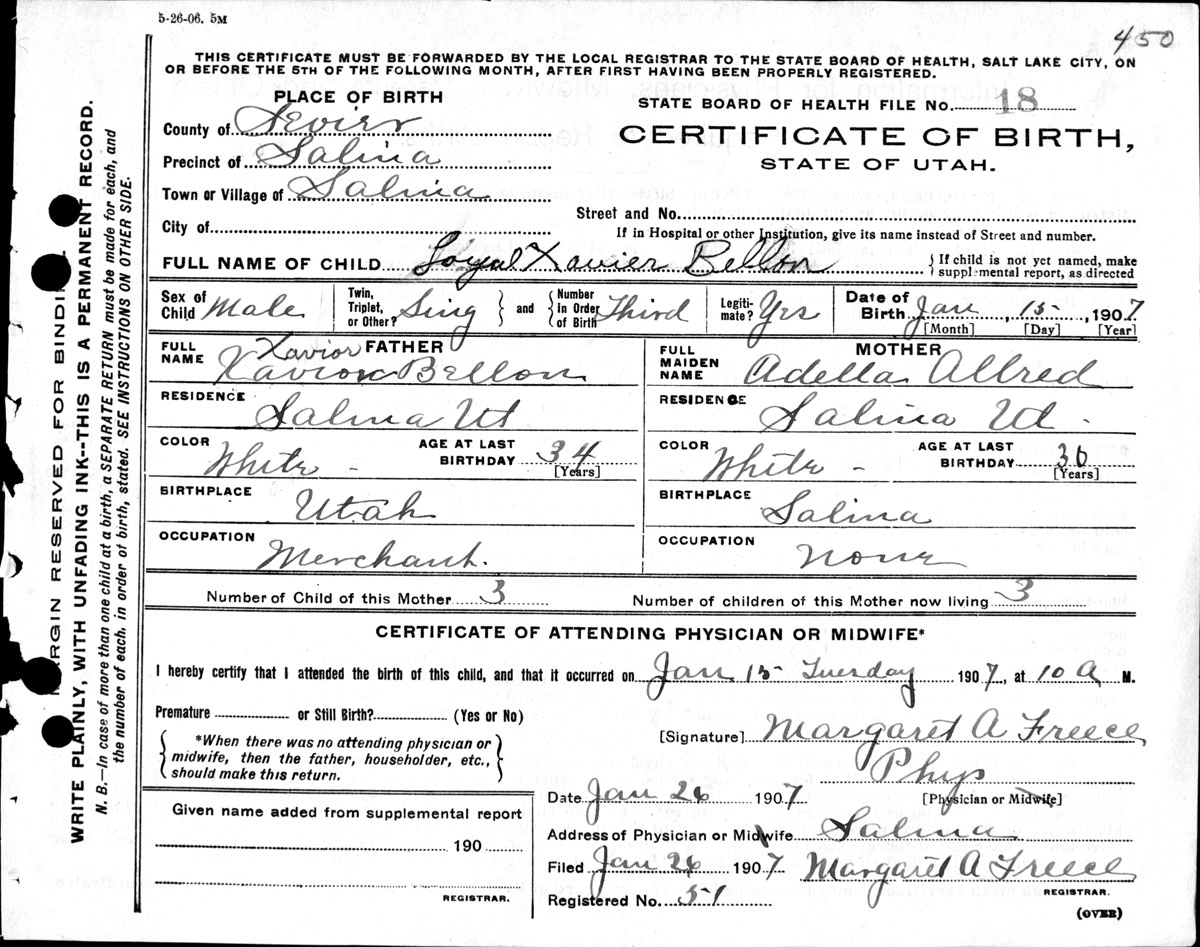 5-26-06. 5M
450
THIS CERTIFICATE MUST BE FORWARDED BY THE LOCAL REGISTRAR TO THE STATE BOARD OF HEALTH, SALT LAKE CITY, ON
OR BEFORE THE 5TH OF THE FOLLOWING MONTH, AFTER FIRST HAVING BEEN PROPERLY REGISTERED.
PLACE OF BIRTH
County of Sevier
Precinct of Salina
Town or Village of Salina
City of
STATE BOARD OF HEALTH FILE No. 18
CERTIFICATE OF BIRTH,
STATE OF UTAH.
Street and No.
If in Hospital or other Institution, give its name instead of Street and number.
FULL NAME OF CHILD Loyal Xavier Bellon { If child is not yet named, make
supplemental report, as directed
Sex of Child Male
Twin, Triplet, or Other? Sing } and { Number in Order of Birth Third
Legitimate? Yes
Date of Birth Jan 15, 1907
[Month] [Day] [Year]
FATHER
FULL NAME Xavior
Xavior Bellon
RESIDENCE Salina Ut
COLOR White - AGE AT LAST BIRTHDAY 34
[Years]
BIRTHPLACE Utah
OCCUPATION Merchant.
MOTHER
FULL MAIDEN NAME Adella Allred
RESIDENCE Salina Ut.
COLOR White - AGE AT LAST BIRTHDAY 30
[Years]
BIRTHPLACE Salina
OCCUPATION None
Number of Child of this Mother 3 Number of children of this Mother now living 3
CERTIFICATE OF ATTENDING PHYSICIAN OR MIDWIFE*
I hereby certify that I attended the birth of this child, and that it occurred on Jan 15 - Tuesday 1907, at 10 A M.
Premature or Still Birth? (Yes or No)
{ *When there was no attending physician or
midwife, then the father, householder, etc.,
should make this return. }
[Signature] Margaret A Freece
Phys
[Physician or Midwife]
Given name added from supplemental report
190
REGISTRAR.
Date Jan 26 1907
Address of Physician or Midwife Salina
Filed Jan 26 1907 Margaret A Freece
REGISTRAR.
Registered No. 51
(OVER)
MARGIN RESERVED FOR BINDING
WRITE PLAINLY, WITH UNFADING INK--THIS IS A PERMANENT RECORD.
N. B.—In case of more than one child at a birth, a SEPARATE RETURN must be made for each, and
the number of each, in order of birth, stated. SEE INSTRUCTIONS ON OTHER SIDE.